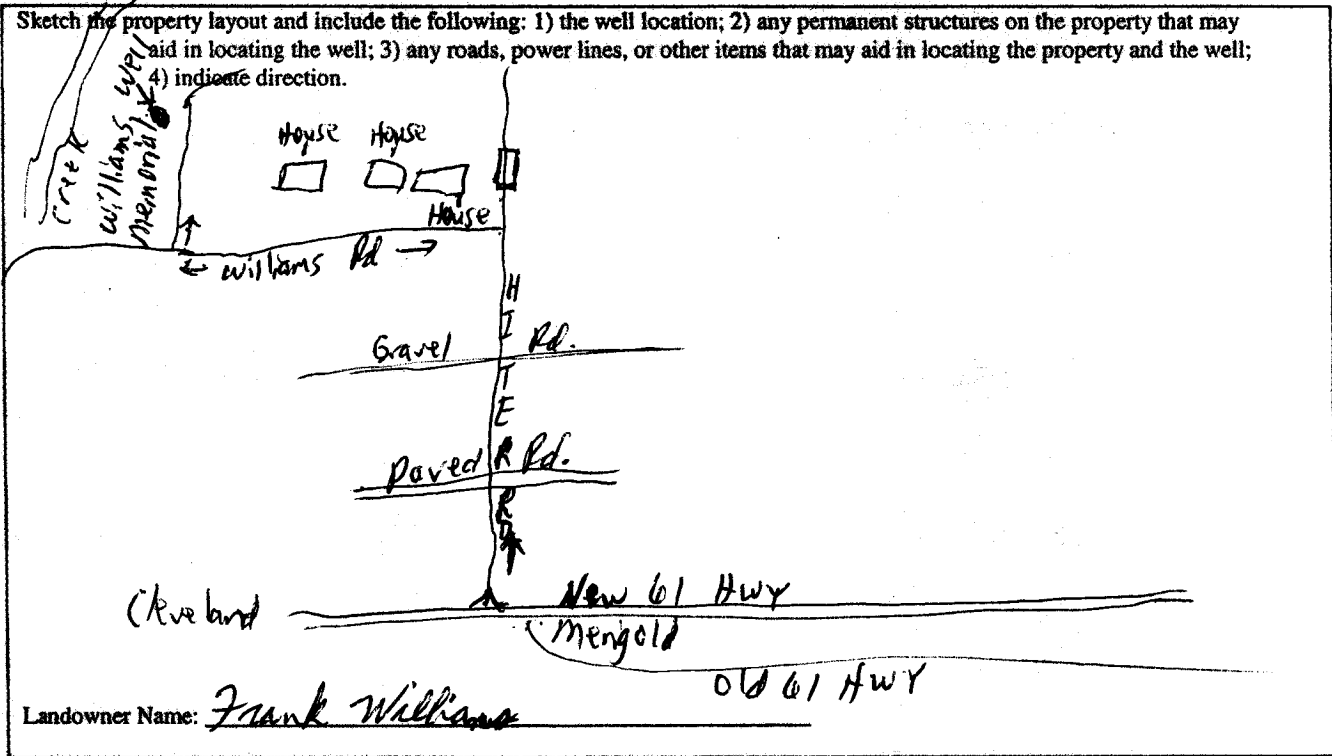 Sketch the property layout and include the following: 1) the well location; 2) any permanent structures on the property that may
aid in locating the well; 3) any roads, power lines, or other items that may aid in locating the property and the well;
4) indicate direction.
Creek
Williams
Memorial
Well
House
House
House
← Williams Rd →
HITER RD
Gravel Rd.
Paved Rd.
Cleveland
New 61 Hwy
Mengold
Old 61 HwY
Landowner Name: Frank Williams